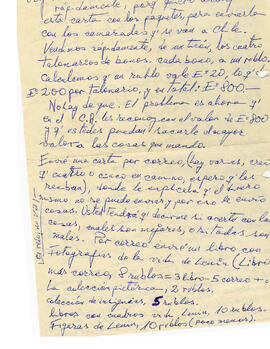 rápidamente, para
esta carta con los paquetes, para enviarla
con los camaradas q' se van a Chile.
Vendimos rápidamente, de un tirón, los cuatro
talonarios de bonos. cada bono, a un rublo.
Calculemos q' un rublo vale E° 20, lo q'
E° 200 por talonario, y en total: E° 800.—
No hay de que. El problema es ahora q'
en el C.R. les reconozcan el valor de E° 800
y q' ustedes puedan sacarle el mayor
valor a las cosas que mando.
Envié una carta por correo, (hay varias, creo
q' cuatro o cinco en camino, espero q' les
reciban), donde le explicaba q' el dinero
mismo no se puede enviar, y por eso le envío
cosas. Usted tendrá q' decirme si acerté con las
cosas, cuales son mejores, o si todas son
malas. Por correo envié mi libro con
Fotografías de la vida de Lenin (Libro
más correo, 8 rublos = 3 libro - 5 correo +
la colección pictórica, 2 rublos.
colección de insignias, 5 rublos.
libros con cuadros vida Lenin, 10 rublos.
Figuras de Lenin, 10 rublos (poco menos).